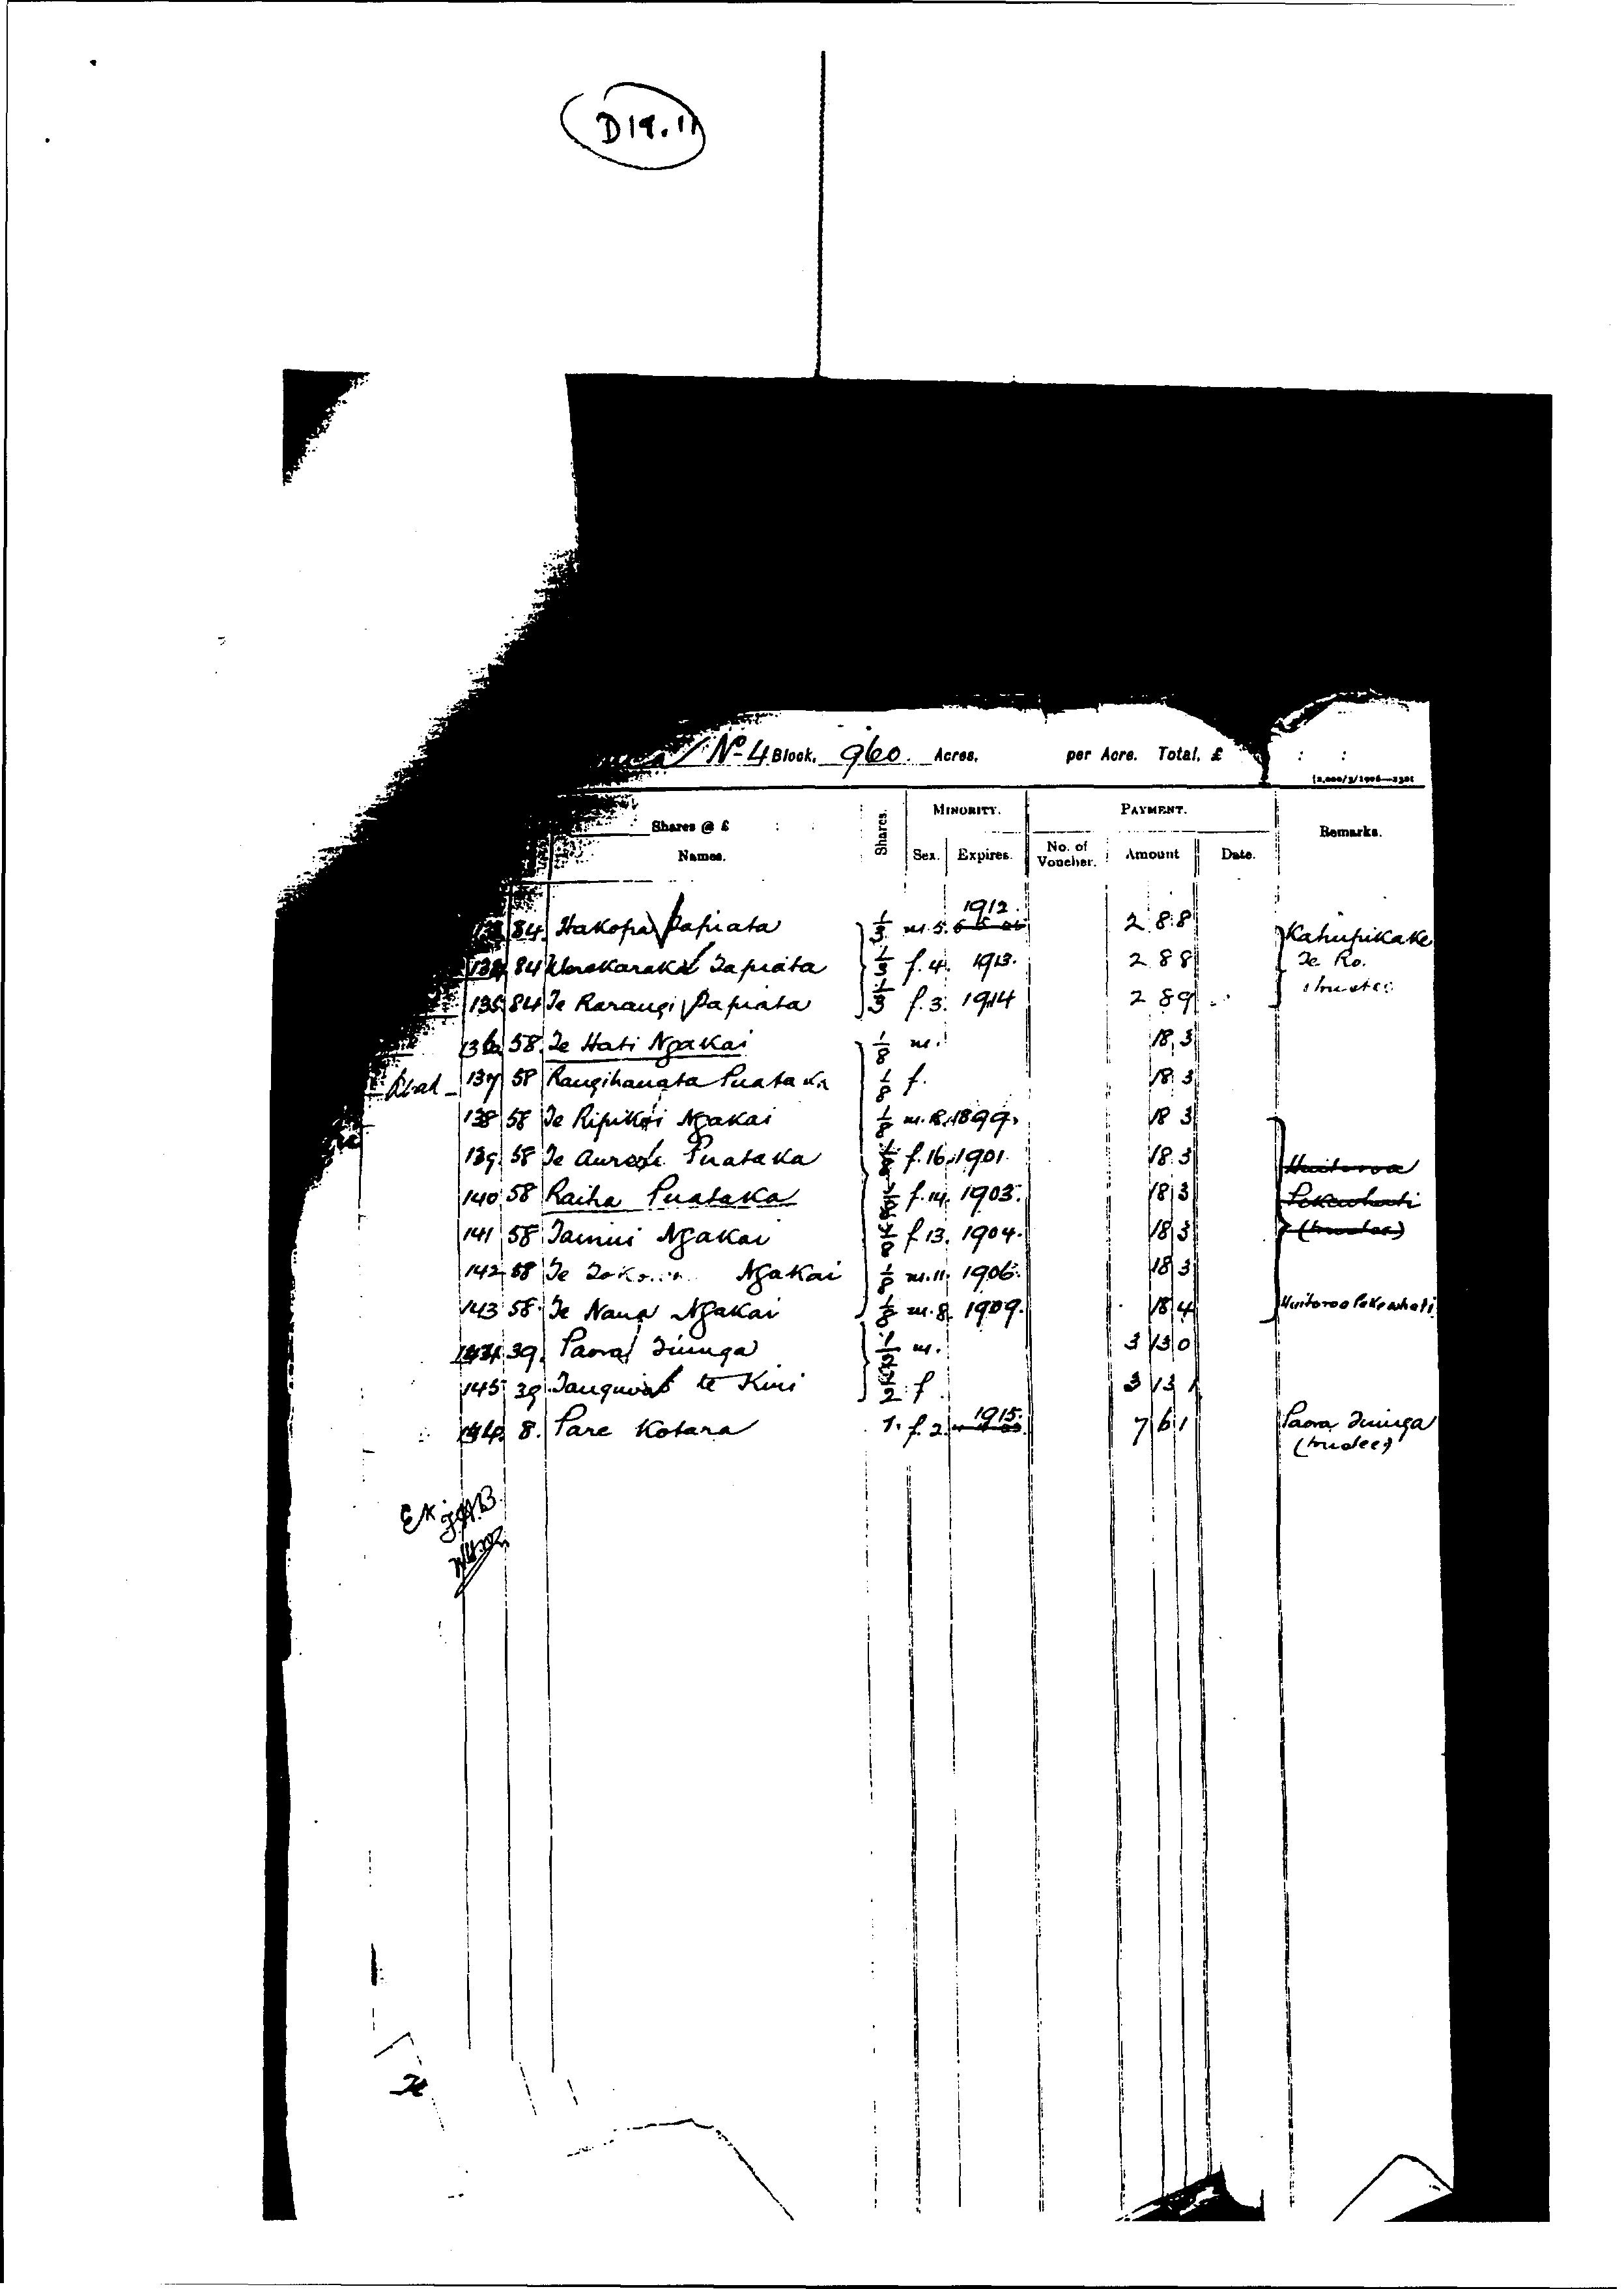 D19.11
No 4 Block. 960. Acres. per Acre. Total, £ : :
Shares @ £ : : Shares. MINORITY. PAYMENT. Remarks.
Names. Sex. Expires. No. of Voucher. Amount Date.
1912.
84. Hakopa Papiata 1/3 m. 5. 2 8 8 Kahupikake
134 84 Tapiata 1/3 f. 4. 1913. 2 8 8 Te Ro.
135 84 Te Rarangi Papiata 1/3 f. 3. 1914 2 8 9 trustee
136 58. Te Hati Ngakai 1/8 m. 18 3
137 58 Rangihanata Puataka 1/8 f. 18 3
138 58 Te Ripikoi Ngakai 1/8 m. 18. 1899. 18 3
139. 58 Te Aurere Puataka 1/8 f. 16. 1901. 18 3 Huitoroa
140 58 Raiha Puataka 1/8 f. 14. 1903. 18 3 Pekewhati
141 58 Tainui Ngakai 1/8 f 13. 1904. 18 3 (trustee)
142 58 Te Ngakai 1/8 m. 11. 1906. 18 3
143 58. Te Naua Ngakai 1/8 m. 8. 1909. 18 4 Huitoroa Pekewhati
144 39. Paora Tiunga 1/2 m. 3 13 0
145 39. te Kiri 1/2 f. 3 13 1
1915.
146. 8. Pare Kotara 1. f. 2. 7 6 1 Paora Tiunga
(trustee)
Ex
Te